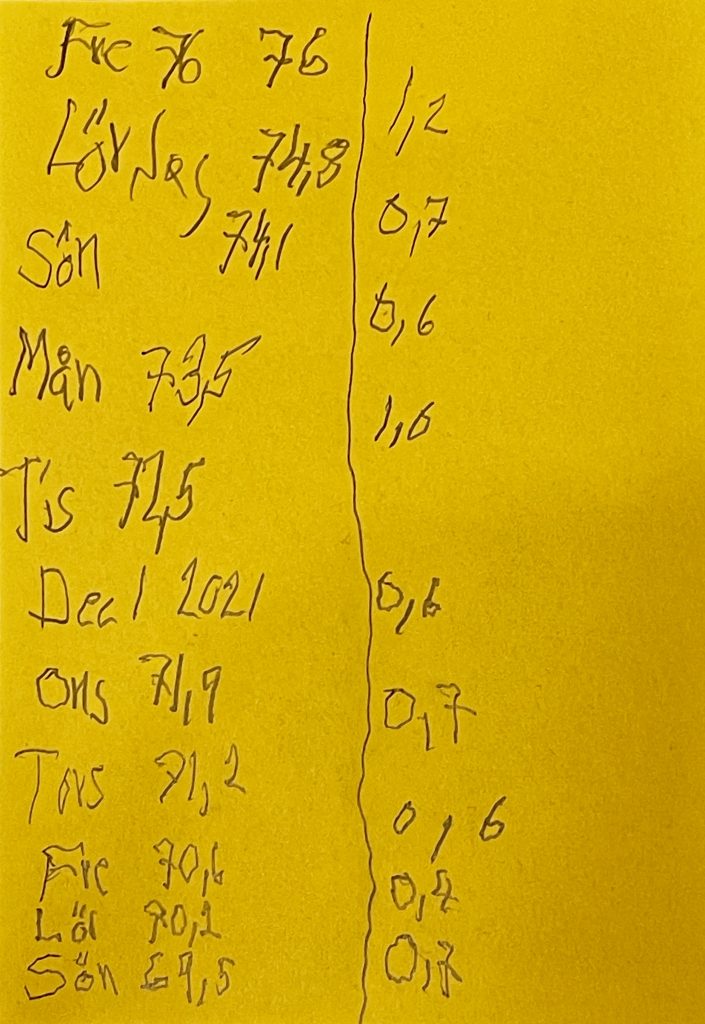 Fre 76 76
1,2
Lördag 74,8
0,7
Sön 74,1
0,6
Mån 73,5
1,0
Tis 72,5
Dec 1 2021
0,6
Ons 71,9
0,7
Tors 71,2
0,6
Fre 70,6
0,4
Lör 70,2
0,7
Sön 69,5